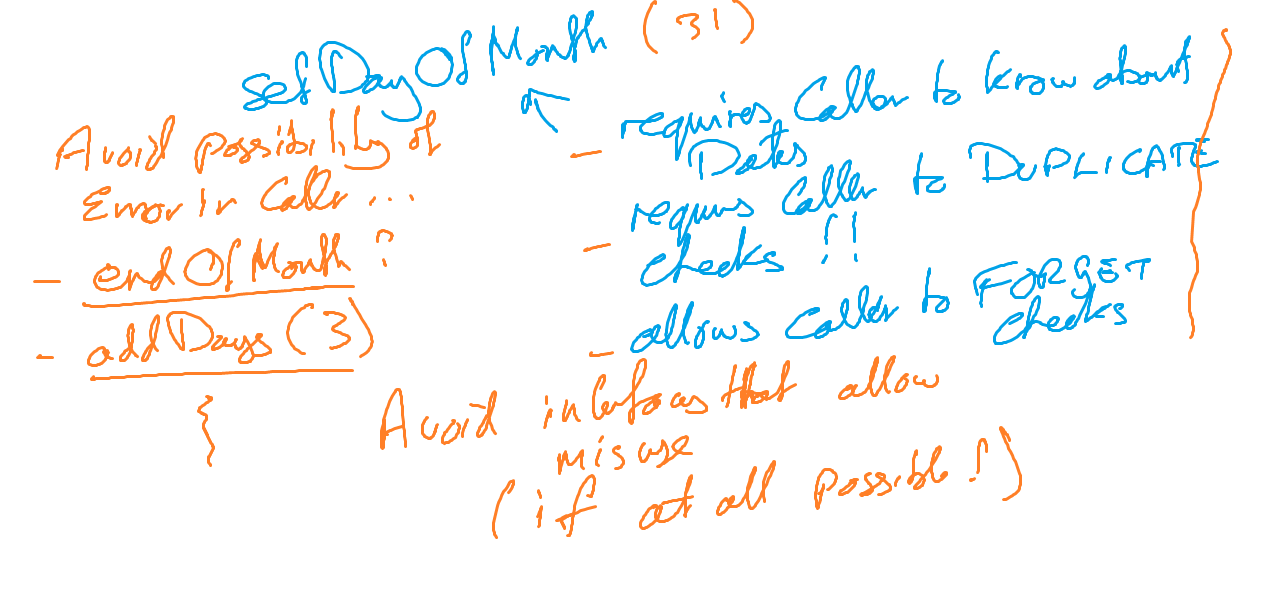 setDayOfMonth (31)
Avoid possibility of
Error in Caller ...
- endOfMonth ?
- addDays (3)
- requires Caller to know about
Dates
- requires Caller to DUPLICATE
checks !!
- allows Caller to FORGET
checks
Avoid interfaces that allow
misuse
(if at all possible !)